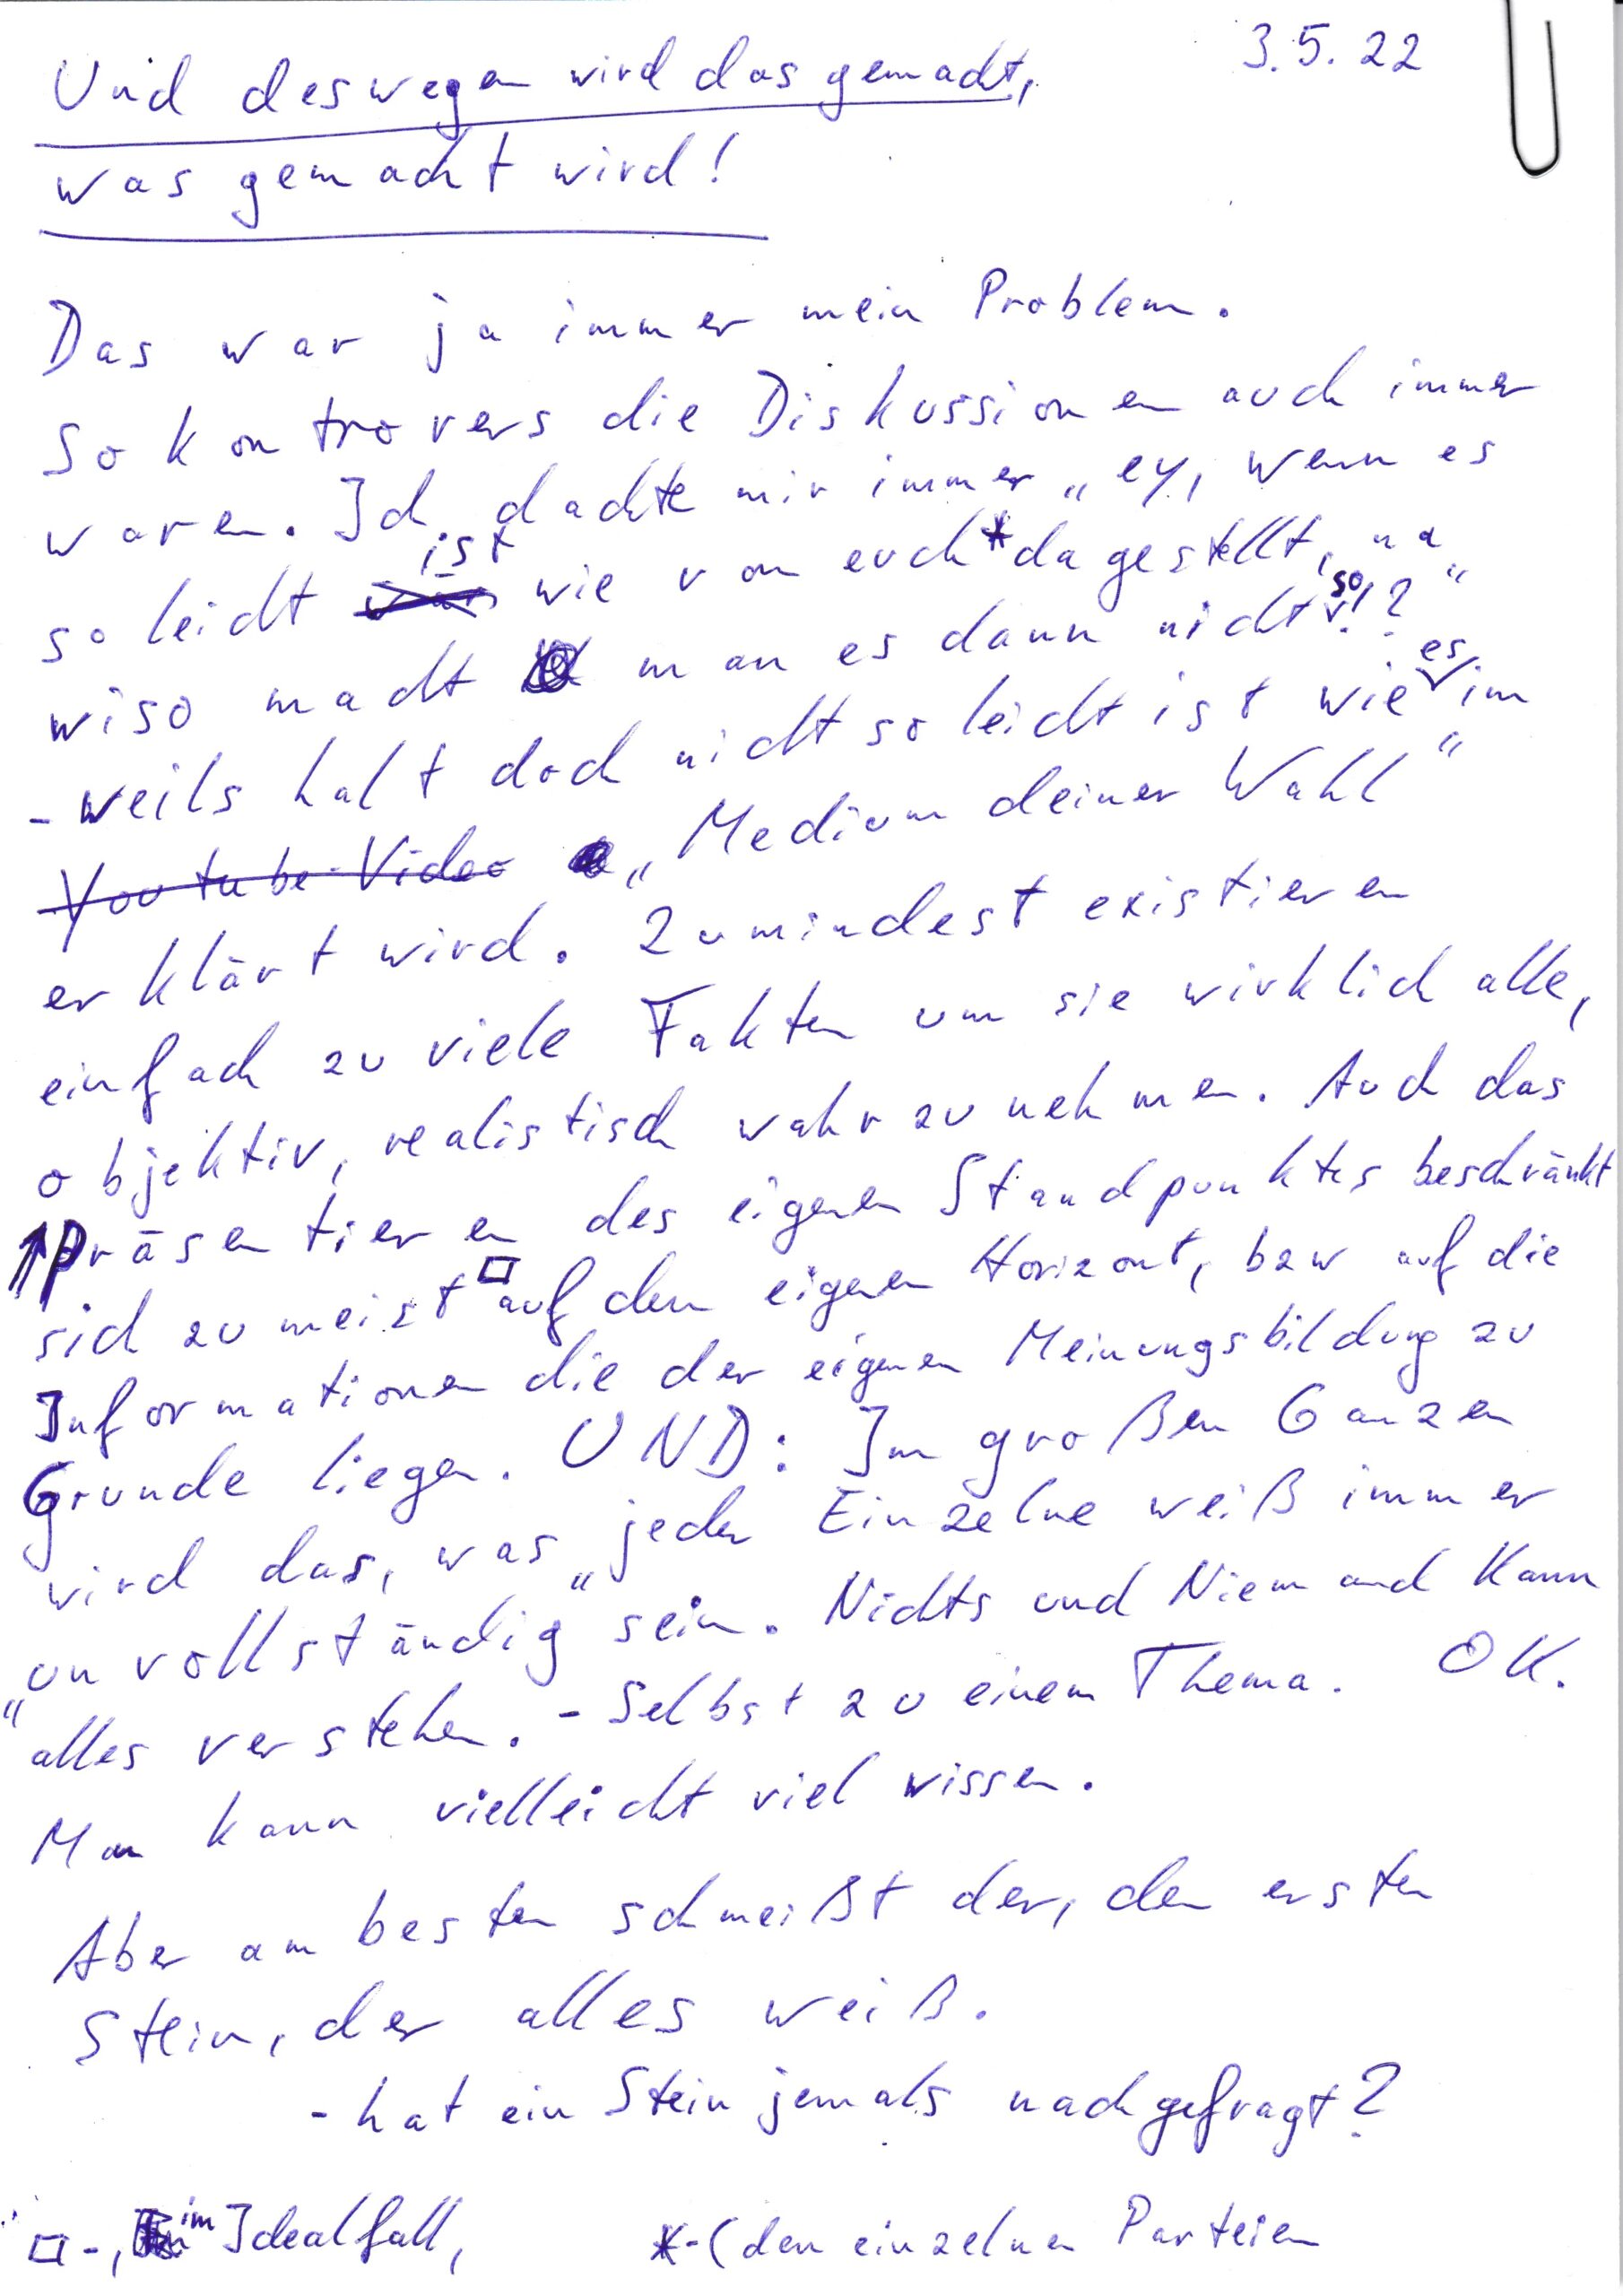 3.5.22
Und deswegen wird das gemacht,
was gemacht wird!
Das war ja immer mein Problem.
So kontrovers die Diskussionen auch immer
waren. Ich dachte mir immer „ey, wenn es
so leicht ist wie von euch* dagestellt, na"
wiso macht man es dann nicht so!?
- weils halt doch nicht so leicht ist wie es im
Youtube-Video „Medium deiner Wahl"
erklärt wird. Zumindest existieren
einfach zu viele Fakten um sie wirklich alle,
objektiv, realistisch wahrzunehmen. Auch das
↑Präsentieren des eigenen Standpunktes beschränkt
sich zumeist □ auf den eigenen Horizont, bzw auf die
Informationen die der eigenen Meinungsbildung zu
Grunde liegen. UND: Im großen Ganzen
wird das, was „jeder Einzelne weiß immer
„unvollständig" sein. Nichts und Niemand kann
alles verstehen. - Selbst zu einem Thema. OK.
Man kann vielleicht viel wissen.
Aber am besten schmeißt der, den ersten
Stein, der alles weiß.
- hat ein Stein jemals nachgefragt?
□ -, im Idealfall,
* - (den einzelnen Parteien